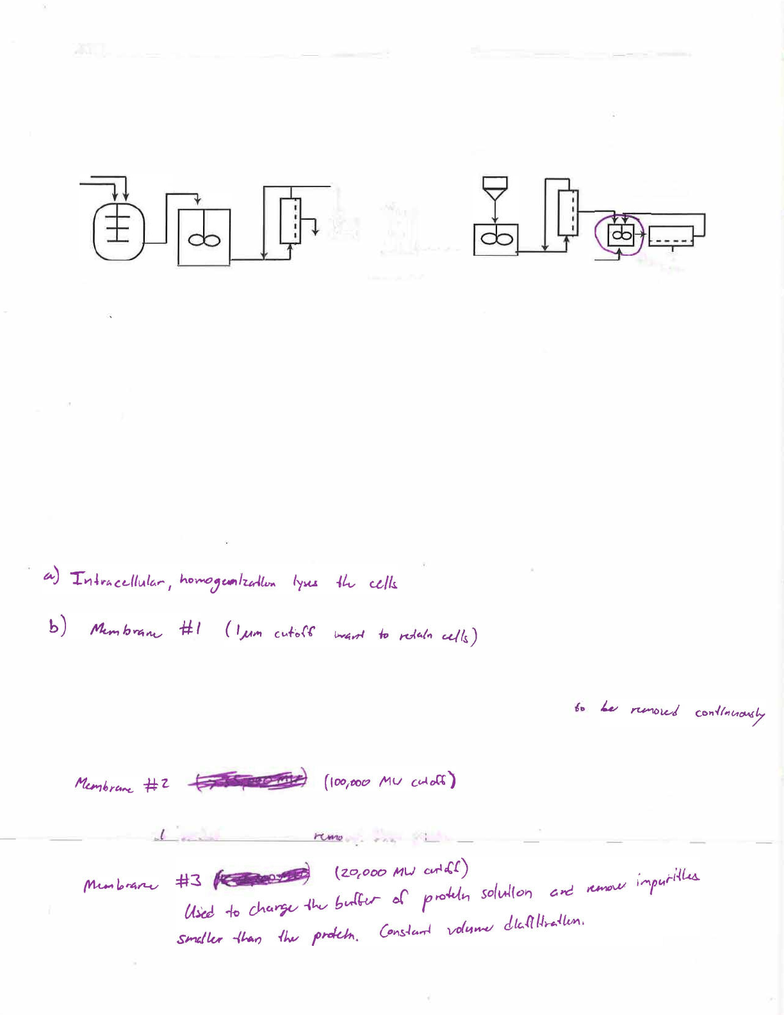 a) Intracellular, homogenization lyses the cells
b) Membrane #1 (1μm cutoff want to retain cells)
to be removed continuously
Membrane #2 (100,000 MW cutoff)
remo
Membrane #3 (20,000 MW cutoff)
Used to change the buffer of protein solution and remove impurities
smaller than the protein. Constant volume diafiltration.